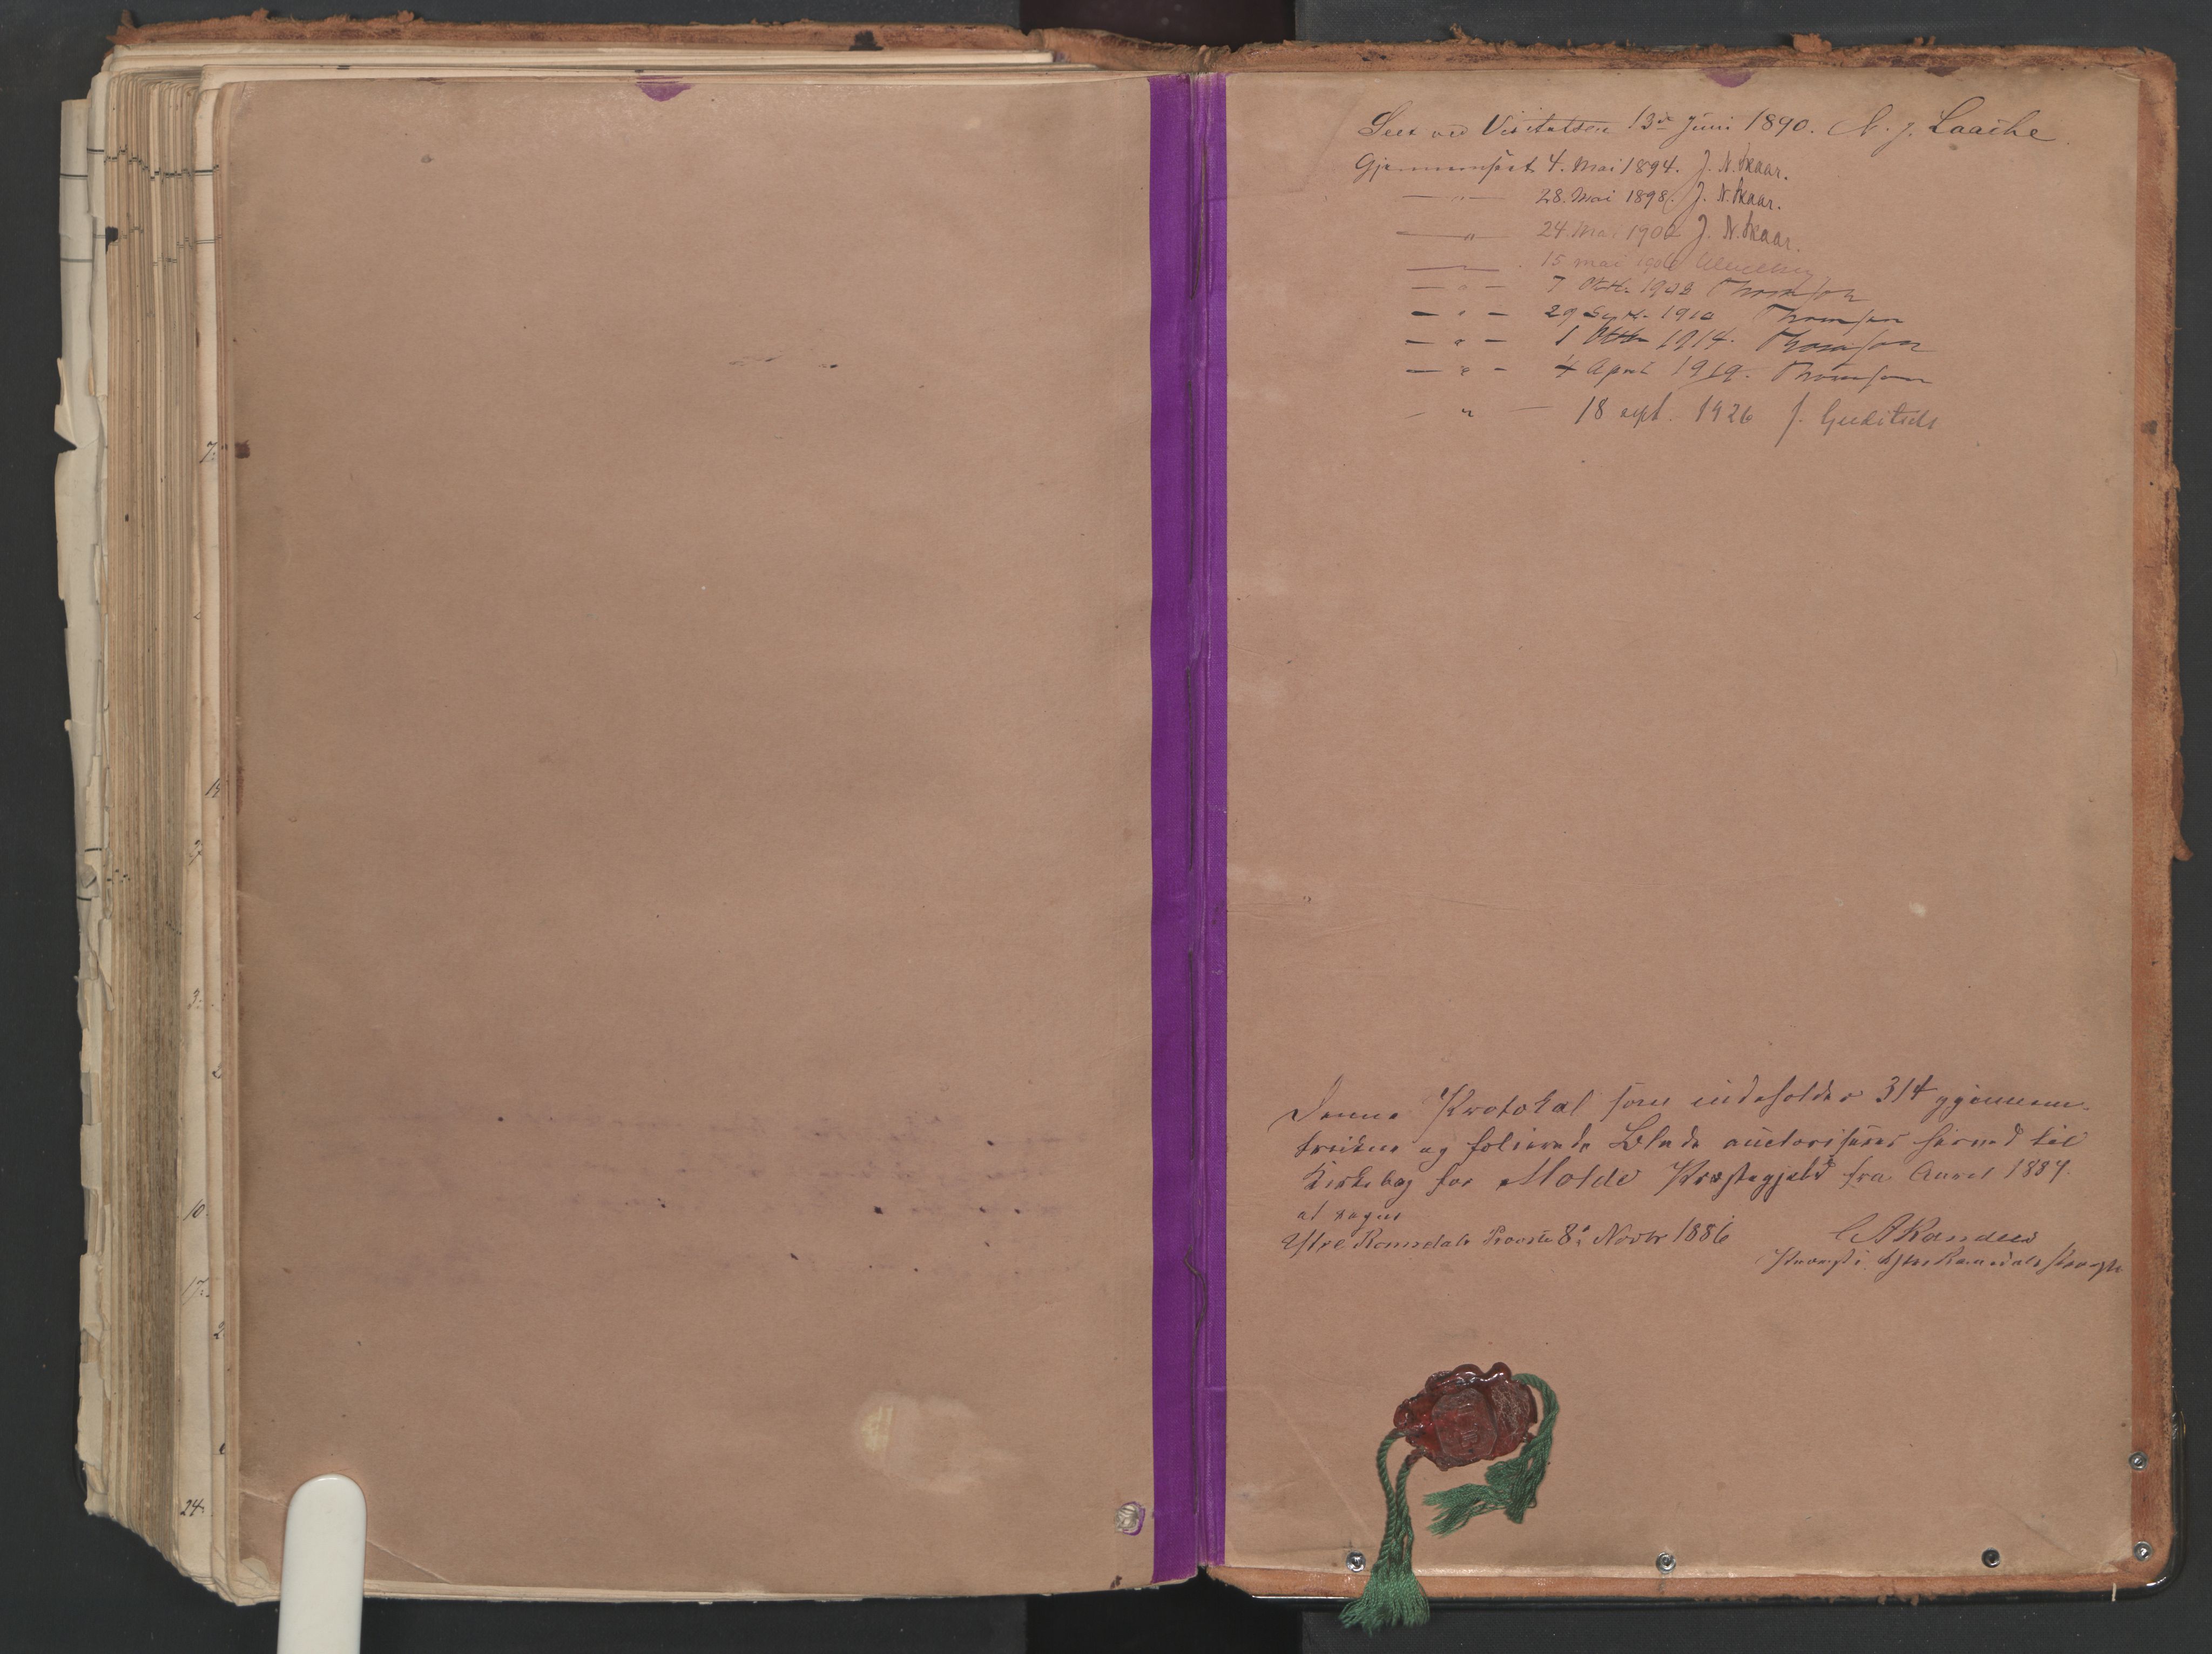 Seet ved Visitatsen 13de Juni 1890. N. J. Laache
Gjennemseet 4. Mai 1894. J. N. Skaar.
— " — 28. Mai 1898. J. N. Skaar.
— " — 24. Mai 1902 J. N. Skaar.
— " — 15 mai 1906
— " — 7 Oktbr. 1908 Thomson
— " — 29 Septbr. 1910 Thomson
— " — 1 Oktbr 1914. Thomson
— " — 4 April 1919. Thomson
— " — 18 sept. 1926 J.
Denne Protokol som indeholder 314 gjennem-
trukne og folierede Blade auctoriseres herved til
Kirkebog for Molde Præstegjeld fra Aaret 1887.
at regne
Ytre Romsdals Provsti 8de Novbr 1886
Provst i Ytre Romsdals Provsti
7.
14
3.
10
17.
2
24.